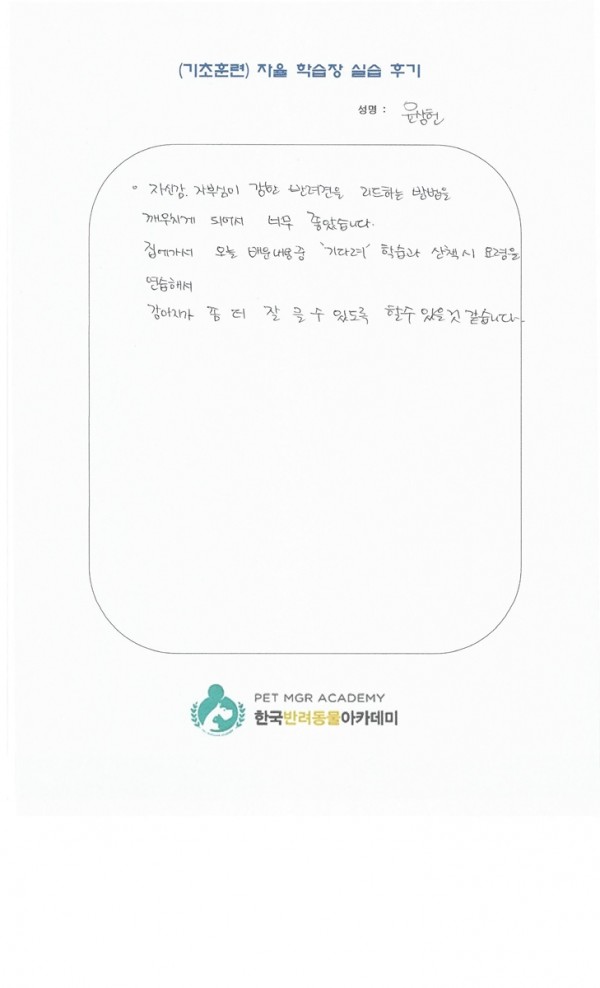 (기초훈련) 자율 학습장 실습 후기
성명 : 윤상헌
。 자신감. 자부심이 강한 반려견을 리드하는 방법을
깨우치게 되어서 너무 좋았습니다.
집에가서 오늘 배운내용중 '기다려' 학습과 산책시 요령을
연습해서
강아지가 좀 더 잘 클 수 있도록 할수 있을것 같습니다.
PET MGR ACADEMY
한국반려동물아카데미